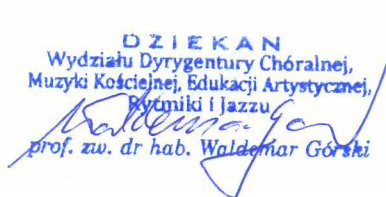 DZIEKAN
Wydziału Dyrygentury Chóralnej,
Muzyki Kościelnej, Edukacji Artystycznej,
Rytmiki i Jazzu
prof. zw. dr hab. Waldemar Górski